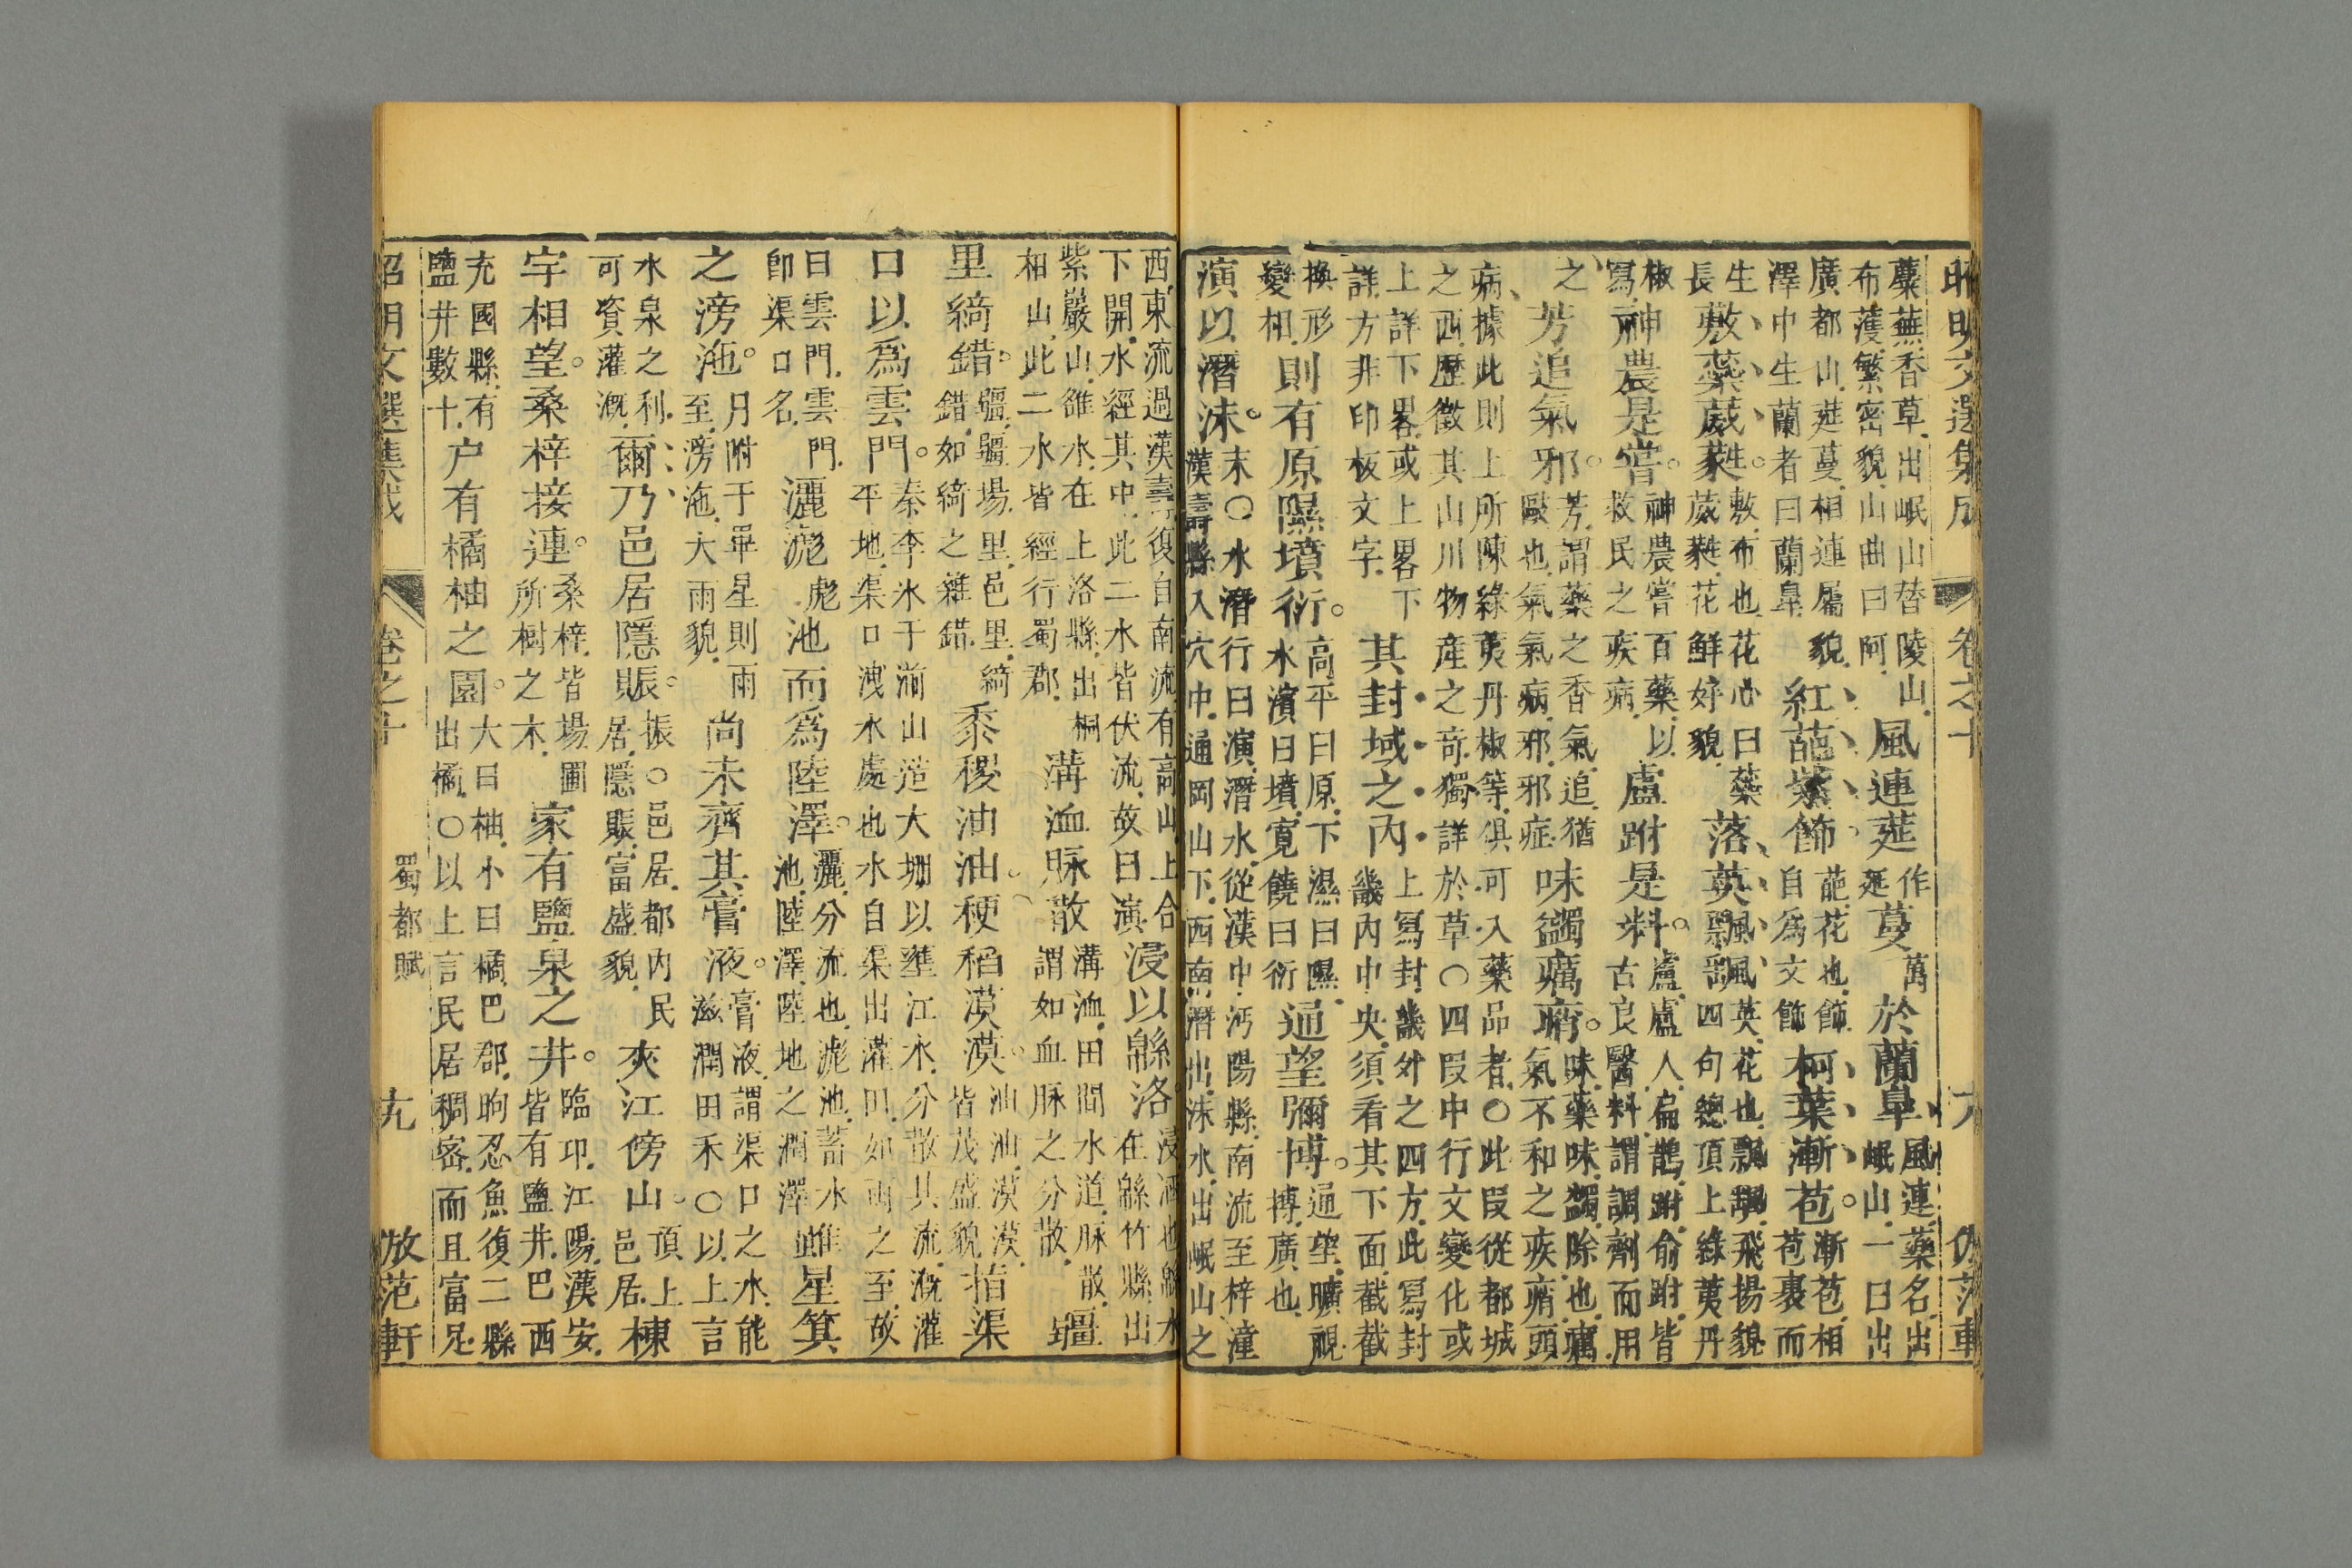 昭明文選集成 卷之十
蘪蕪香草.出岷山替陵山.
布濩繁密貌.山曲曰阿.
風連莚
作延
蔓
萬
於蘭臯
風連.藥名.出
岷山.一曰出
廣都山.莚蔓相連屬貌.
澤中生蘭者曰蘭臯
紅葩紫飾。
葩花也.飾
自為文飾
柯葉漸苞。
漸苞.相
苞裹而
生
長
敷蘂葳蕤。
敷布也.花心曰蘂
葳蕤花鮮好貌.
落英飄颻
英花也.飄颻飛揚貌
四句總頂上綠荑丹
椒
寫
神農是嘗。
神農嘗百藥.以
救民之疾病.
盧跗是料。
盧盧人扁鵲.跗俞跗.皆
古良醫.料謂調劑而用
之
芳追氣邪。
芳謂藥之香氣.追猶
毆也.氣氣病.邪邪症
味蠲癘痟。
味藥味.蠲除也.癘
氣不和之疾.痟頭
病據此則上所陳綠荑丹椒等.俱可入藥品者.○此叚從都城
之西歷徵其山川物產之奇.獨詳於草.○四叚中行文變化或
上詳下畧.或上畧下
詳.方非印板文字.
其封域之內
上寫封畿外之四方.此寫封
畿內中央.須看其下面截截
換形
變相.
則有原隰墳衍。
高平曰原.下濕曰隰.
水濱曰墳.寬饒曰衍
通望彌博。
通望.曠視.
博.廣也.
演以潛沬。
末○水潛行曰演.潛水.從漢中沔陽縣.南流至梓潼
漢壽縣入穴中.通岡山下.西南潛出.沬水.出岷山之
西東流過漢壽復自南流.有高山.上合
下開.水經其中.此二水皆伏流.故曰演.
浸以緜洛。
浸漑也緜水
在緜竹縣.出
紫巖山.雒水.在上洛縣.出桐
相山.此二水皆經行蜀郡.
溝洫脉散
溝洫.田間水道.脉散.
謂如血脉之分散.
疆
里綺錯。
疆疆場.里邑里.綺
錯.如綺之雜錯.
黍稷油油。稉稻漠漠。
油油.漠漠.
皆茂盛貌
指渠
口以為雲門。
秦李氷于湔山造大堋以壅江水.分散其流.溉灌
平地.渠口洩水處也水自渠出灌田.如雨之至.故
曰雲門.雲門.
卽渠口名.
灑滮
彪
池而為陸澤。
灑.分流也.滮池.蓄水
池.陸澤.陸地之潤澤
雖星箕
之滂沲。
月附于畢星則雨
至.滂沲.大雨貌.
尚未齊其膏液。
膏液.謂渠口之水.能
滋潤田禾○以上言
水泉之利.
可資灌溉.
爾乃邑居隱賑。
振○邑居.都內民
居.隱賑.富盛貌.
夾江傍山。
頂上
邑居.
棟
宇相望。桑梓接連。
桑梓.皆場圃
所樹之木.
家有鹽泉之井。
臨卭.江陽.漢安.
皆有鹽井.巴西
充國縣.有
鹽井數十.
户有橘柚之園。
大曰柚.小曰橘.巴郡.朐忍.魚復二縣
出橘.○以上言民居稠密.而且富足
昭明文選集成 卷之十 蜀都賦 十九 倣范軒